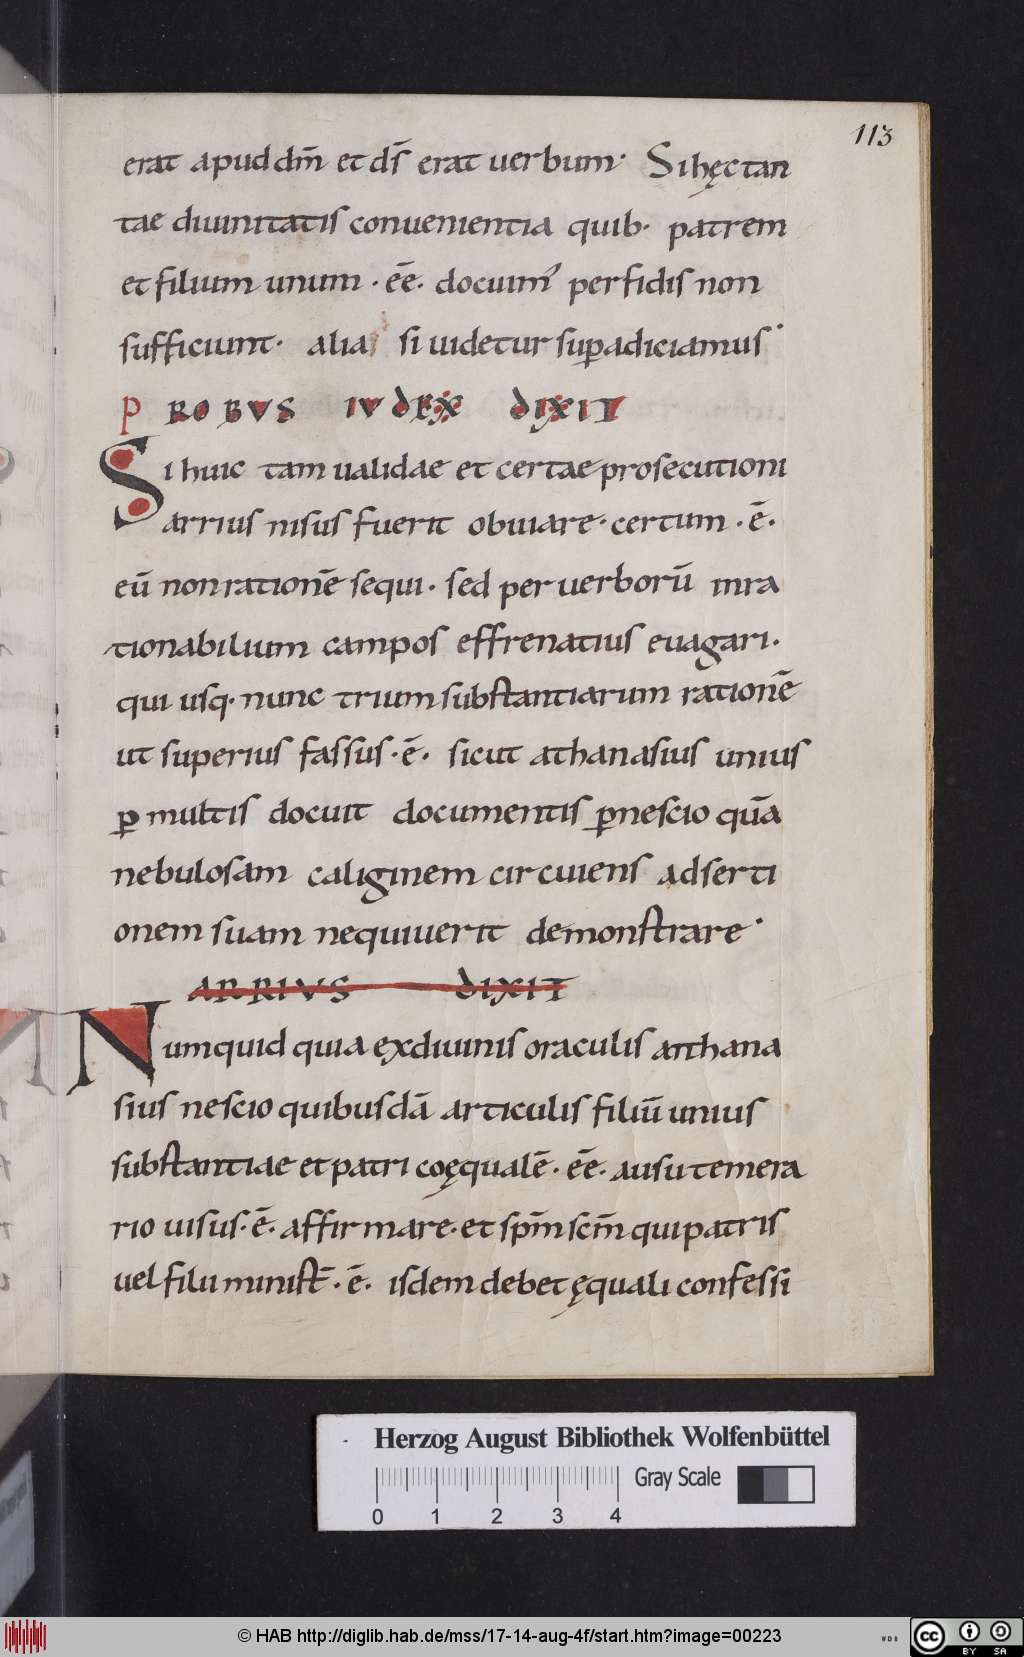 113
erat apud dm̄ et ds̄ erat uerbum· Si hęc tan
tae diuinitatis conuenientia quib· patrem
et filium unum · eē· docum̄ perfidis non
sufficiunt· alia si uidetur sup̄adiciamus·
PROBVS IVDEX DIXIT
Si huic tam ualidae et certae prosecutioni
arrius nisus fuerit obuiare· certum · ē·
eū non rationē sequi · sed per uerborū inra
tionabilium campos effrenatius euagari ·
qui usq· nunc trium substantiarum rationē
ut superius fassus · ē · sicut athanasius unius
ꝑ multis docuit documentis ꝑ nescio quā
nebulosam caliginem circuiens adserti
onem suam nequiuerit demonstrare·
ARRIVS DIXIT
Numquid quia ex diuinis oraculis athana
sius nescio quibusdā articulis filiū unius
substantiae et patri coęqualē · eē · ausu temera
rio uisus · ē · affirmare · et spm̄ scm̄ qui patris
uel filii minist̄ · ē · isdem debet ęquali confessi
Herzog August Bibliothek Wolfenbüttel
Gray Scale
0 1 2 3 4
© HAB http://diglib.hab.de/mss/17-14-aug-4f/start.htm?image=00223
WDB
cc BY SA